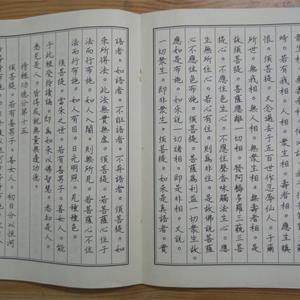 有我相。人相。眾生相。壽者相。應生瞋
恨。須菩提。又念過去於五百世作忍辱仙人。於爾
所世。無我相。無人相。無眾生相。無壽者相。是
故須菩提。菩薩應離一切相。發阿耨多羅三藐三菩
提心。不應住色生心。不應住聲香味觸法生心。應
生無所住心。若心有住。則為非住。是故佛說菩薩
心不應住色布施。須菩提。菩薩為利益一切眾生故。
應如是布施。如來說一切諸相。即是非相。又說。
一切眾生。即非眾生。須菩提。如來是真語者。實
語者。如語者。不誑語者。不異語者。須菩提。如
來所得法。此法無實無虛。須菩提。若菩薩心住於
法而行布施。如人入闇。則無所見。若菩薩心不住
法而行布施。如人有目。日光明照。見種種色。
須菩提。當來之世。若有善男子。善女人。能
於此經受持讀誦。即為如來以佛智慧。悉知是人。
悉見是人。皆得成就無量無邊功德。
持經功德分第十五
須菩提。若有善男子。善女人。初日分以恆河